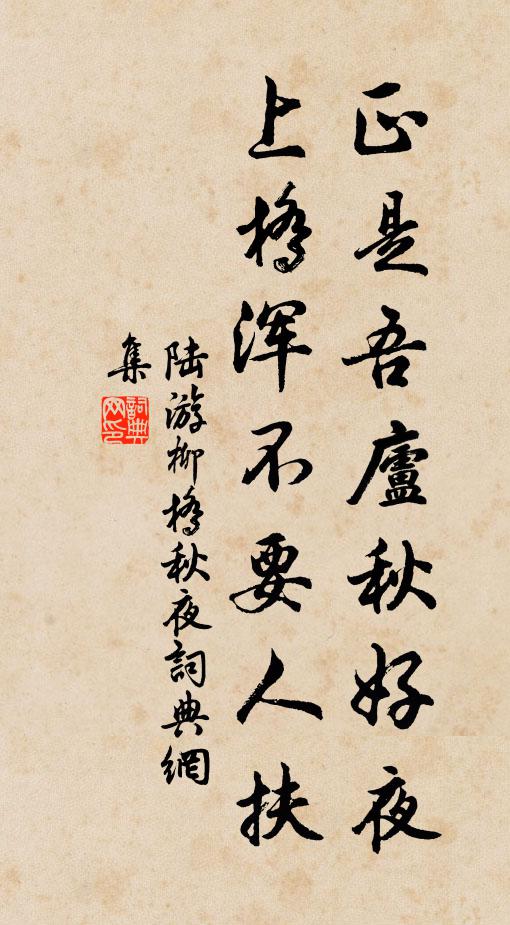 正是吾廬秋好夜
上橋渾不要人扶
陆游柳橋秋夜詞典網
集
詞典
网印